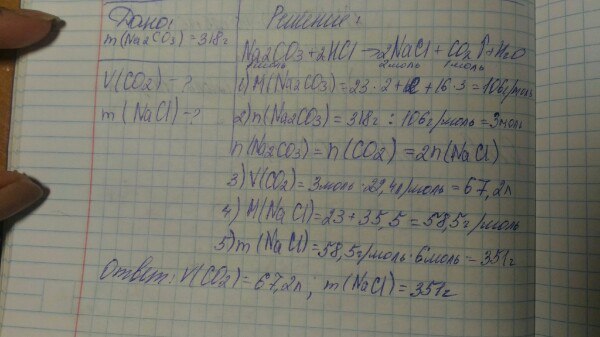 Дано:
m(Na2CO3)=318г
V(CO2)-?
m(NaCl)-?
Решение:
Na2CO3+2HCl→2NaCl+CO2↑+H2O
1моль 2моль 1моль
1) M(Na2CO3)=23·2+12+16·3=106г/моль
2) n(Na2CO3)=318г:106г/моль=3моль
n(Na2CO3)=n(CO2)=2n(NaCl)
3) V(CO2)=3моль·22,4л/моль=67,2л
4) M(NaCl)=23+35,5=58,5г/моль
5) m(NaCl)=58,5г/моль·6моль=351г
Ответ: V(CO2)=67,2л; m(NaCl)=351г